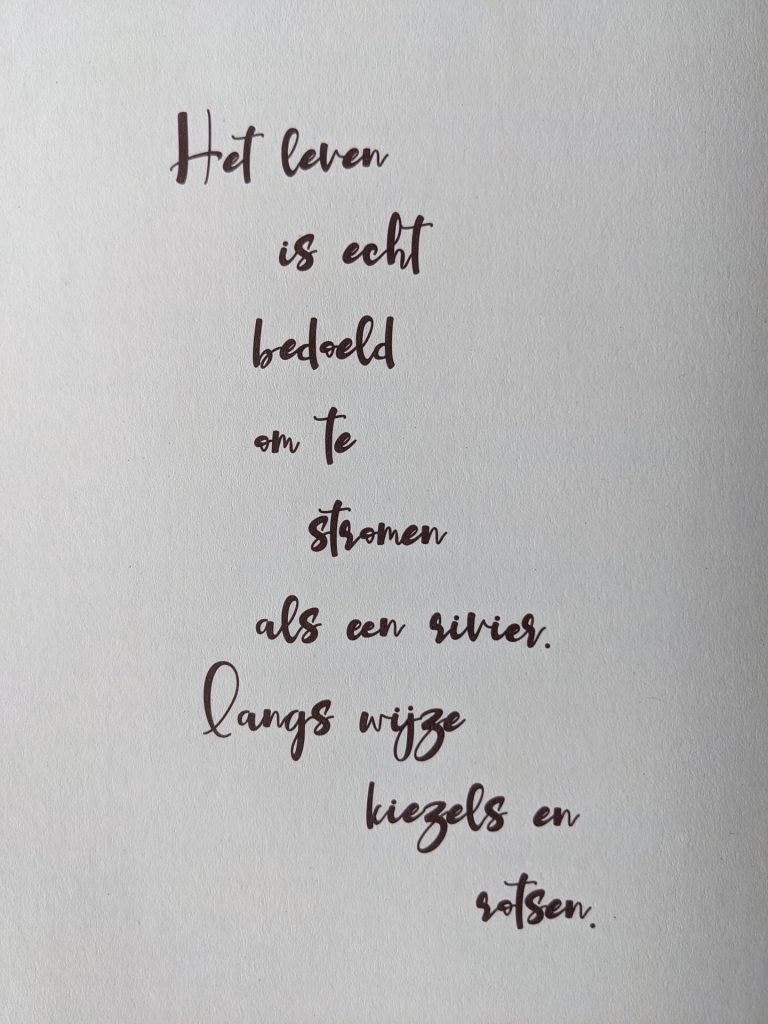 Het leven
is echt
bedoeld
om te
stromen
als een rivier.
Langs wijze
kiezels en
rotsen.